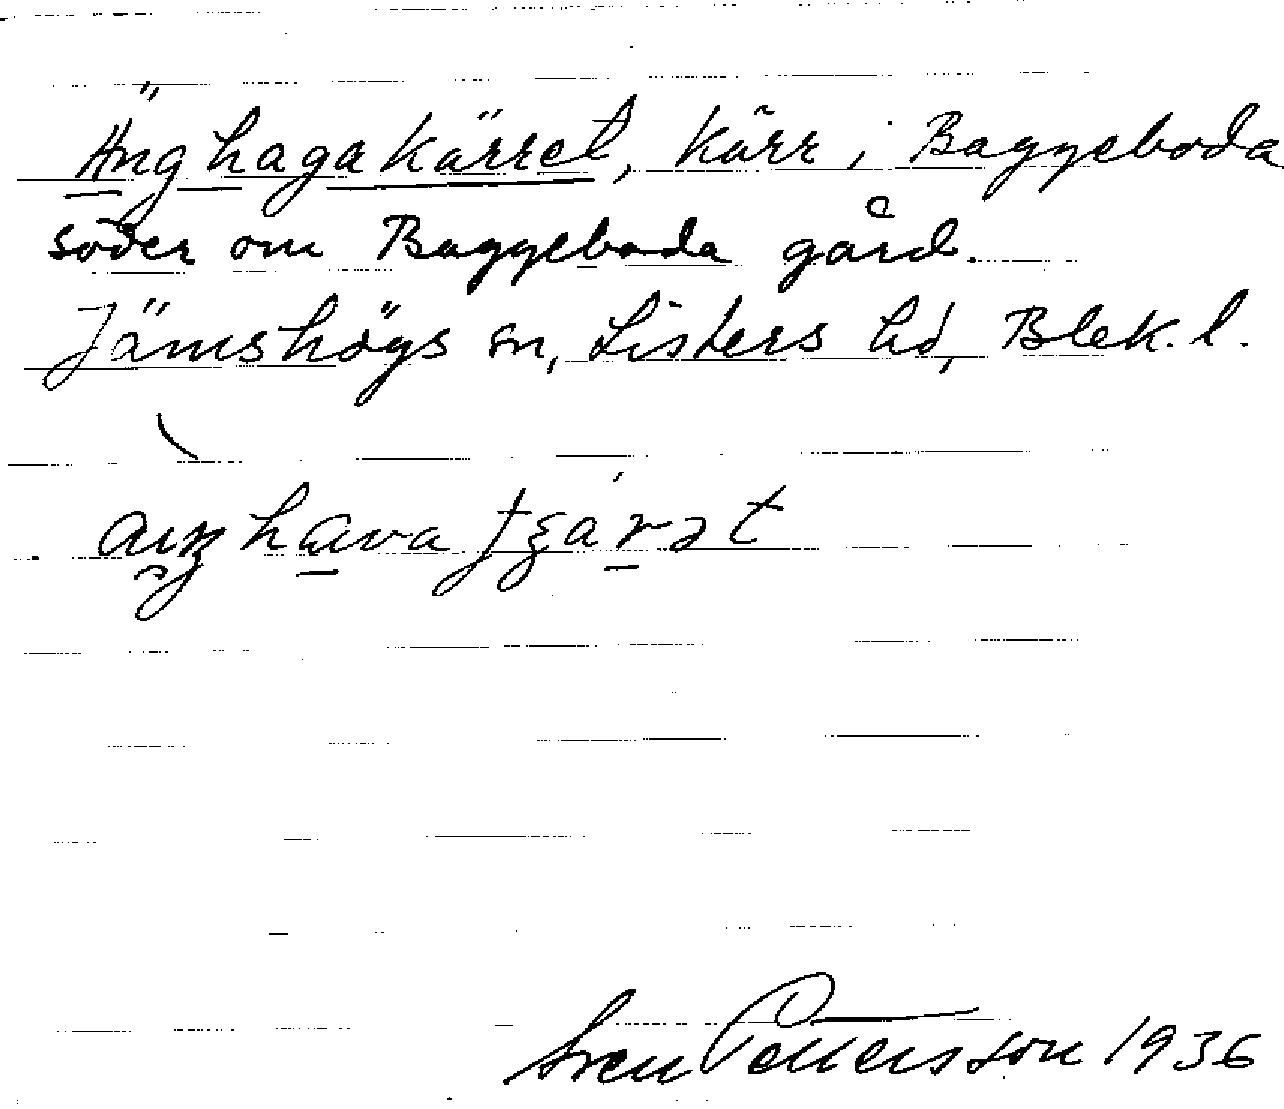 Änghagakärret, kärr i Baggeboda
söder om Baggeboda gård.
Jämshögs sn, Listers hd, Blek. l.
Sven Pettersson 1936